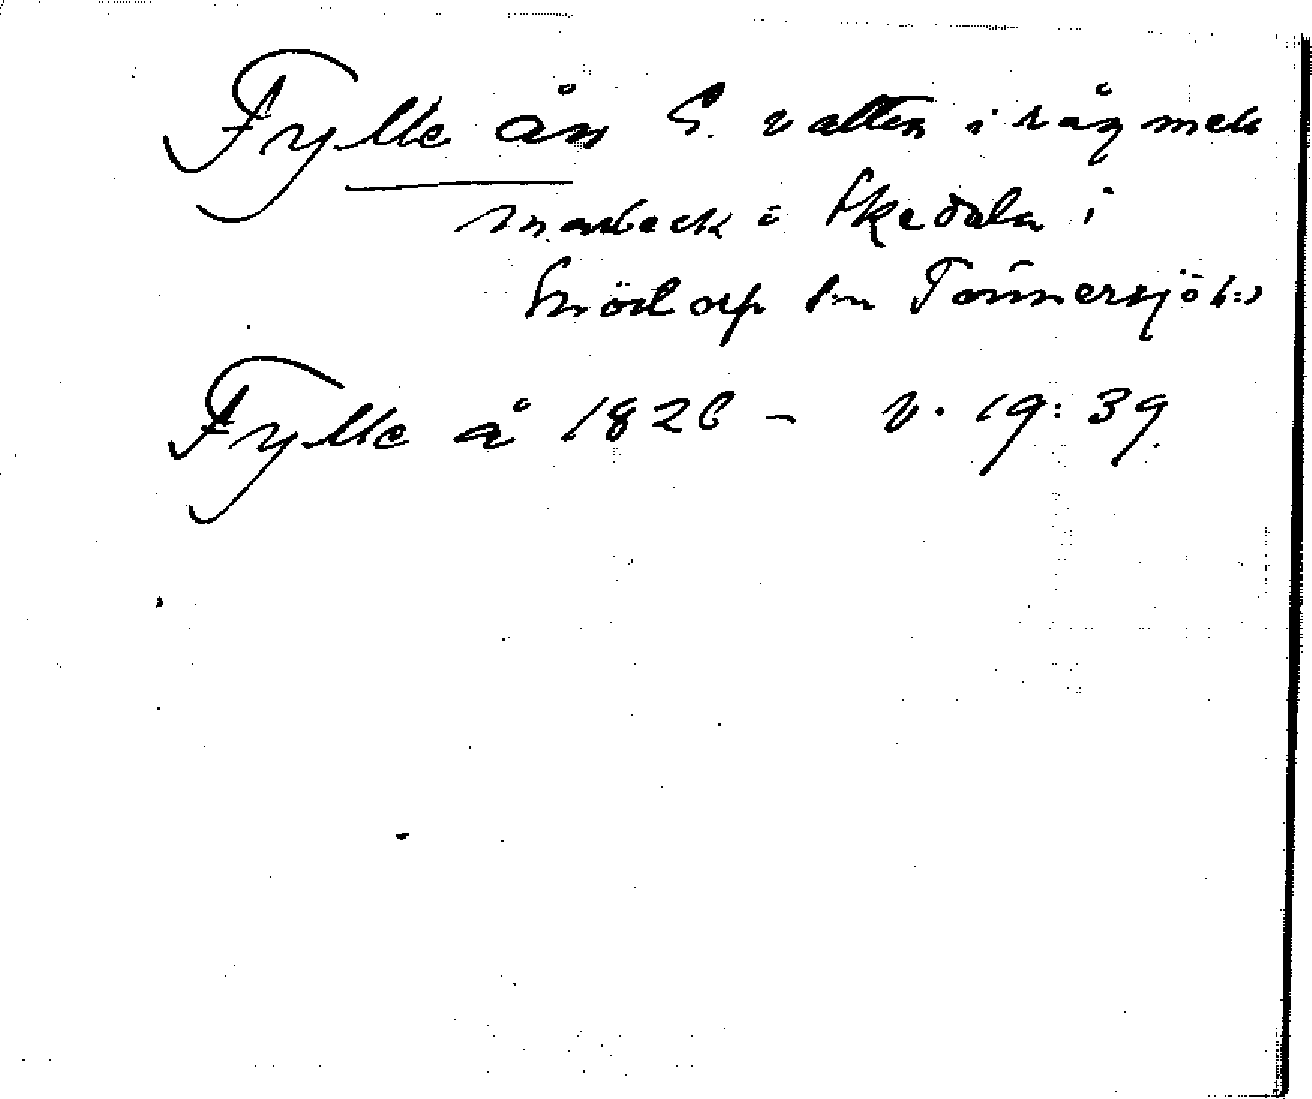 Fylle ån S. vatten i råg med
Marbeck o Skedala i
Snöstorp sn Tönnersjö h:d
Fylle å 1826 - V. 19:39